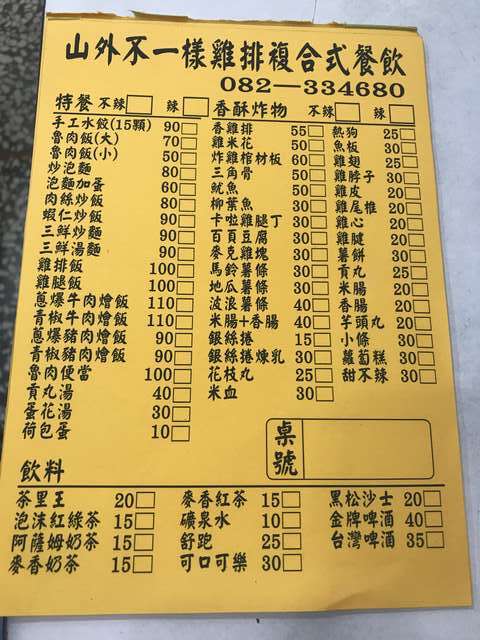 山外不一樣雞排複合式餐飲
082—334680
特餐 不辣 辣
手工水餃(15顆) 90
魯肉飯(大) 70
魯肉飯(小) 50
炒泡麵 80
泡麵加蛋 60
肉絲炒飯 80
蝦仁炒飯 90
三鮮炒麵 90
三鮮湯麵 90
雞排飯 100
雞腿飯 100
蔥爆牛肉燴飯 110
青椒牛肉燴飯 110
蔥爆豬肉燴飯 90
青椒豬肉燴飯 90
魯肉便當 100
貢丸湯 40
蛋花湯 30
荷包蛋 10
香酥炸物 不辣 辣
香雞排 55
雞米花 50
炸雞棺材板 60
三角骨 50
魷魚 50
柳葉魚 50
卡啦雞腿丁 30
百頁豆腐 30
麥克雞塊 30
馬鈴薯條 30
地瓜薯條 30
波浪薯條 40
米腸+香腸 40
銀絲捲 15
銀絲捲煉乳 30
花枝丸 25
米血 30
熱狗 25
魚板 30
雞翅 25
雞脖子 30
雞皮 20
雞尾椎 20
雞心 20
雞腱 20
薯餅 30
貢丸 25
米腸 20
香腸 20
芋頭丸 20
小條 30
蘿蔔糕 30
甜不辣 30
桌號
飲料
茶里王 20
泡沫紅綠茶 15
阿薩姆奶茶 15
麥香奶茶 15
麥香紅茶 15
礦泉水 10
舒跑 25
可口可樂 30
黑松沙士 20
金牌啤酒 40
台灣啤酒 35